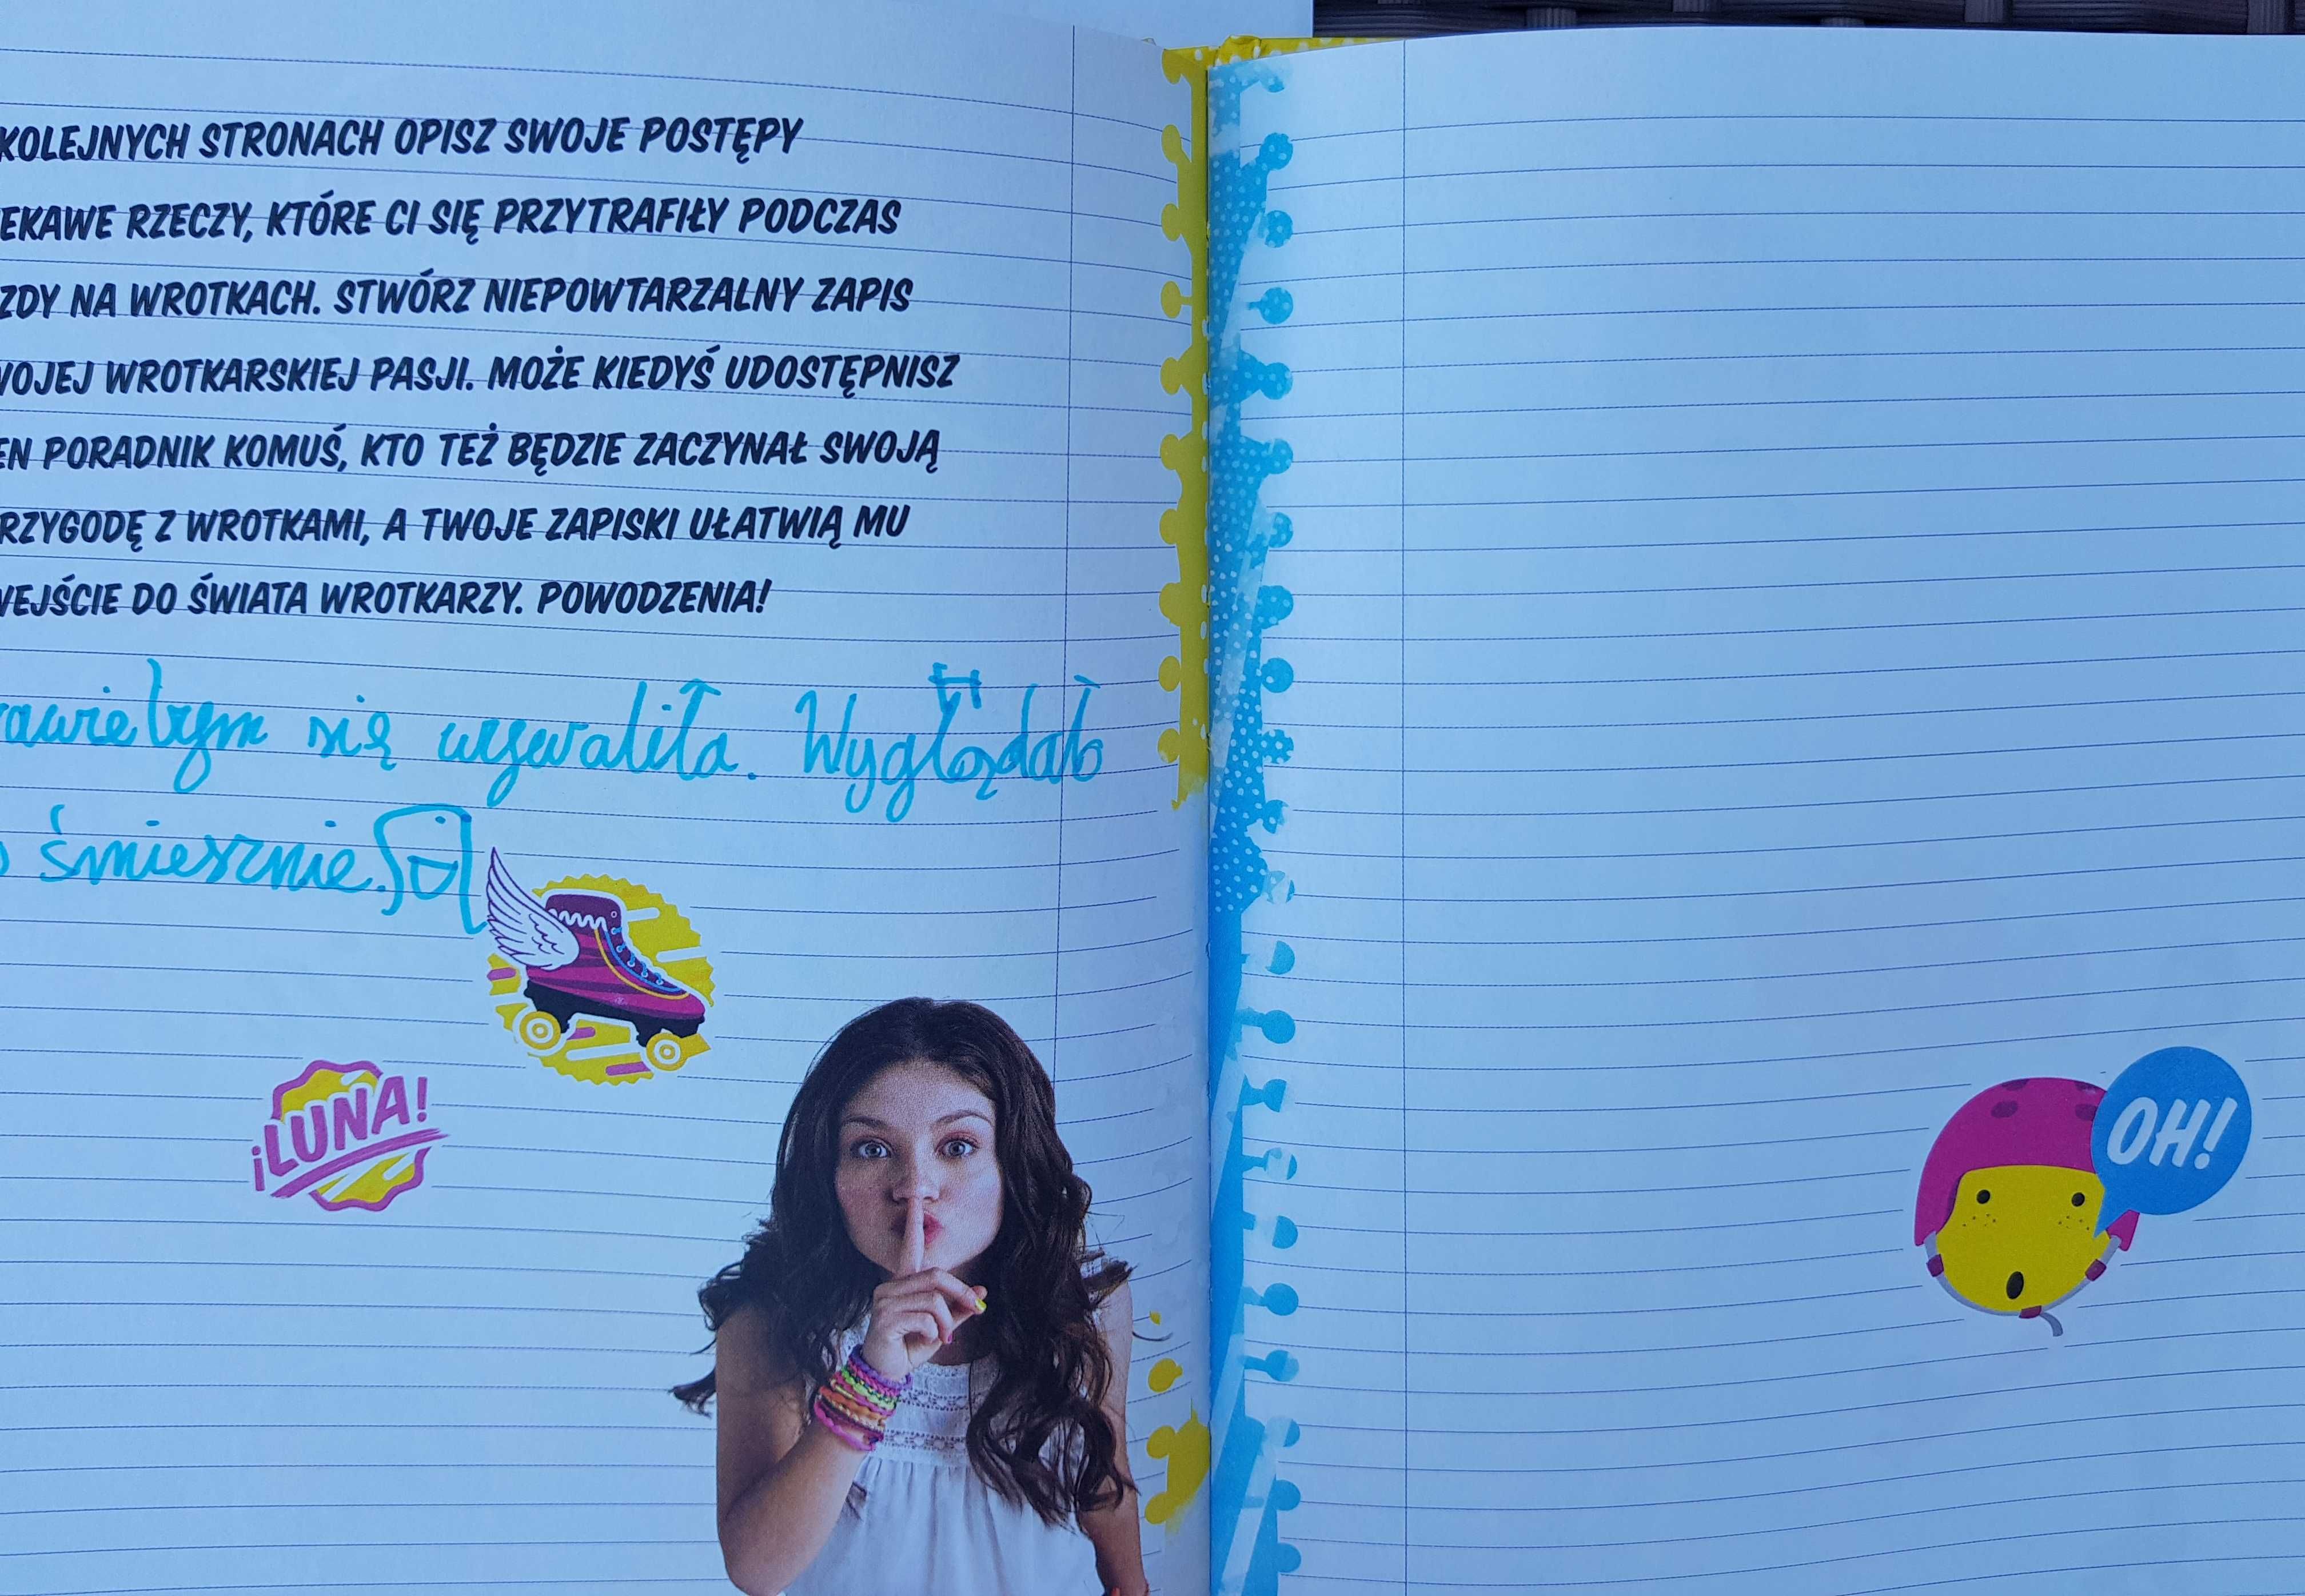 KOLEJNYCH STRONACH OPISZ SWOJE POSTĘPY
EKAWE RZECZY, KTÓRE CI SIĘ PRZYTRAFIŁY PODCZAS
ZDY NA WROTKACH. STWÓRZ NIEPOWTARZALNY ZAPIS
WOJEJ WROTKARSKIEJ PASJI. MOŻE KIEDYŚ UDOSTĘPNISZ
EN PORADNIK KOMUŚ, KTO TEŻ BĘDZIE ZACZYNAŁ SWOJĄ
RZYGODĘ Z WROTKAMI, A TWOJE ZAPISKI UŁATWIĄ MU
WEJŚCIE DO ŚWIATA WROTKARZY. POWODZENIA!
rawie bym się wywaliła. Wyglądało
o śmiesznie.
¡LUNA!
OH!